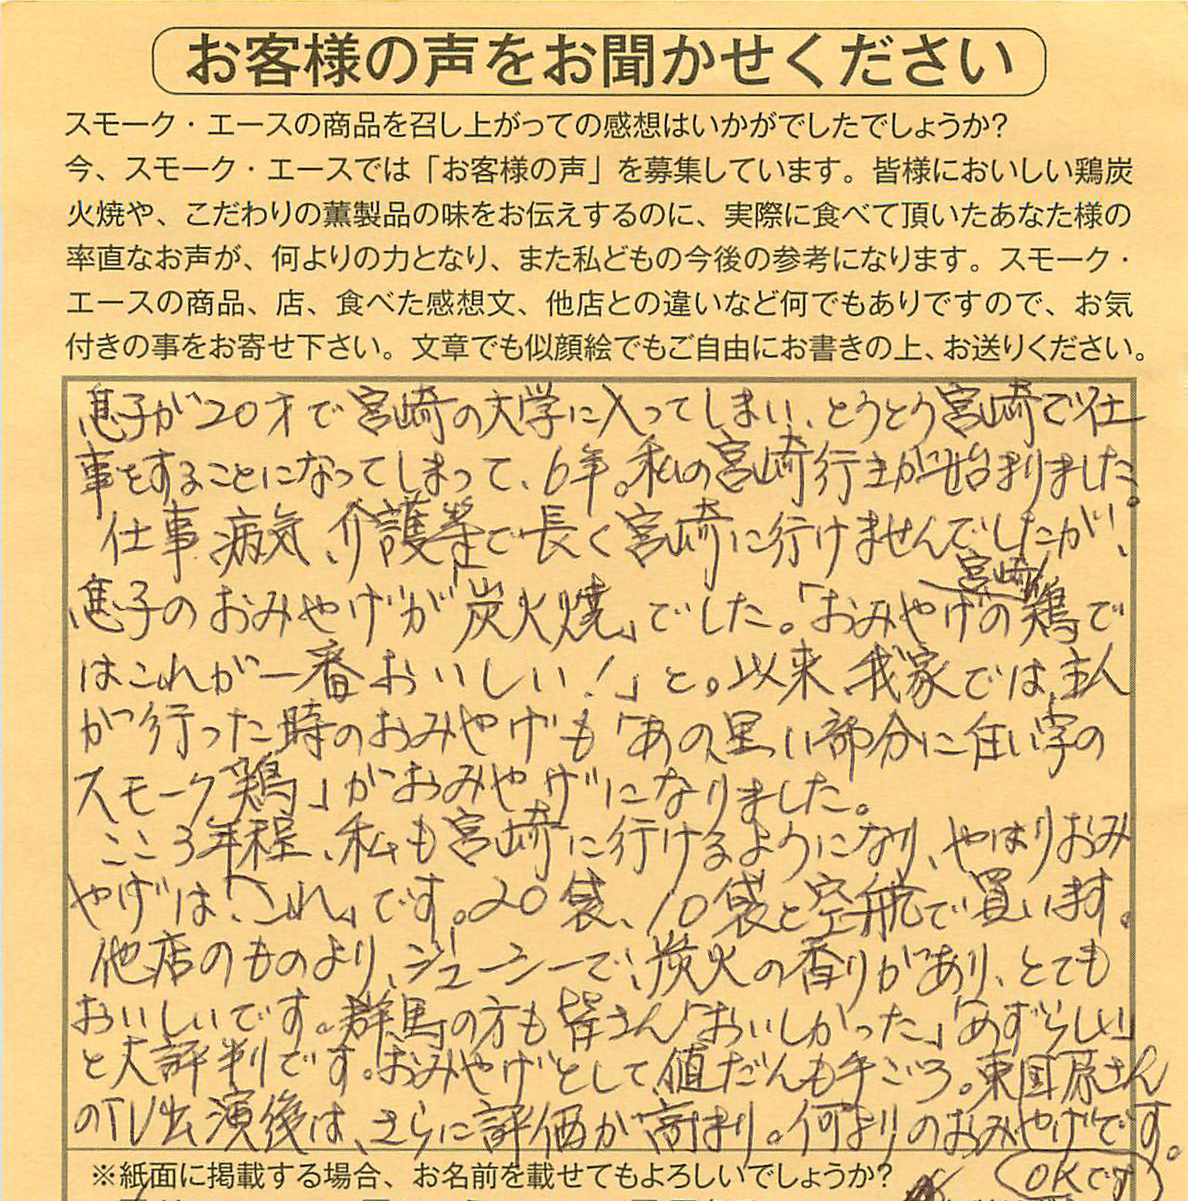 お客様の声をお聞かせください
スモーク・エースの商品を召し上がっての感想はいかがでしたでしょうか?
今、スモーク・エースでは「お客様の声」を募集しています。皆様においしい鶏炭
火焼や、こだわりの薫製品の味をお伝えするのに、実際に食べて頂いたあなた様の
率直なお声が、何よりの力となり、また私どもの今後の参考になります。スモーク・
エースの商品、店、食べた感想文、他店との違いなど何でもありですので、お気
付きの事をお寄せ下さい。文章でも似顔絵でもご自由にお書きの上、お送りください。
息子が20才で宮崎の大学に入ってしまい、とうとう宮崎で仕
事をすることになってしまって、6年。私の宮崎行きが始まりました。
仕事、病気、介護等で長く宮崎に行けませんでしたが、
息子のおみやげが「炭火焼」でした。「おみやげの宮崎鶏で
はこれが一番おいしい!」と。以来、我家では、主人
が行った時のおみやげも「あの、黒っい部分に白い字の
スモーク鶏」がおみやげになりました。
ここ3年程、私も宮崎に行けるようになり、やはりおみ
やげは「これ」です。20袋、10袋と空航で買います。
他店のものより、ジューシーで、炭火の香りがあり、とても
おいしいです。群馬の方も皆さん「おいしかった」「めずらしい」
と大評判です。おみやげとして値だんも手ごろ。東国原さん
のTV出演後は、さらに評価が高まり。何よりのおみやげです。
※紙面に掲載する場合、お名前を載せてもよろしいでしょうか?
OKです